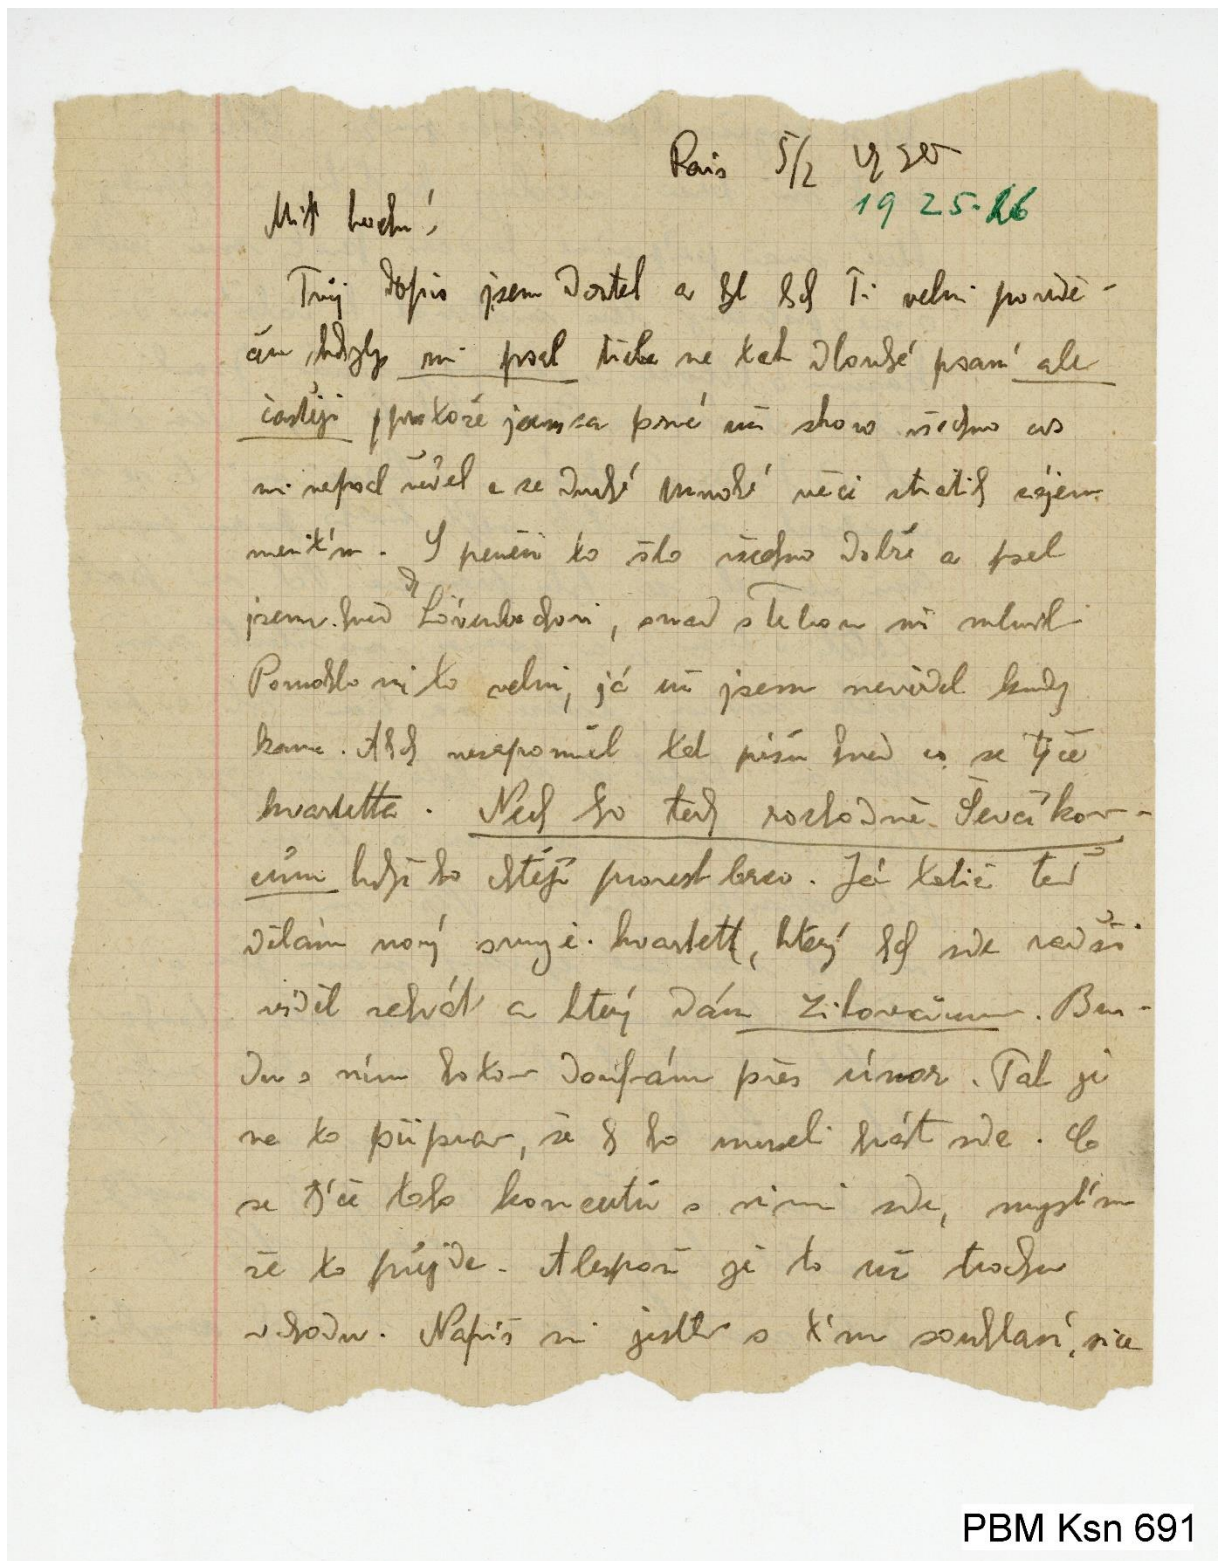 Paris 5/2
1925-26
Milý hochu!
Tvůj dopis jsem dostal a byl bych Ti velmi povdě-
čen kdyby mi psal třeba ne tak dlouhé psaní ale
častěji protože jsem za prvé už skoro všechno cos
mi napsal věděl a ze druhé mnohé věci ztratily zájem
mezitím. S penězi to šlo všechno dobře a psal
jsem hned Dr Löwenbachovi, snad s Tebou už mluvil
Pomohlo mi to velmi, já už jsem nevěděl kudy
kam. Abych nezapomněl tak píšu hned co se týče
kvartetta. Nech ho tedy rozhodně Ševčíkov-
cům když ho chtějí provést brzo. Já totiž teď
dělám nový smyč. kvartett, který bych zde radši
viděl zahrát a který dám Zikovcům. Bu-
du s ním hotov doufám přes únor. Tak je
na to připrav, že by ho museli hrát zde. Co
se týče toho koncertu s nimi zde, myslím
že to půjde. Alespoň je to už trochu
v chodu. Napiš mi jestli s tím souhlasí, sice
PBM Ksn 691